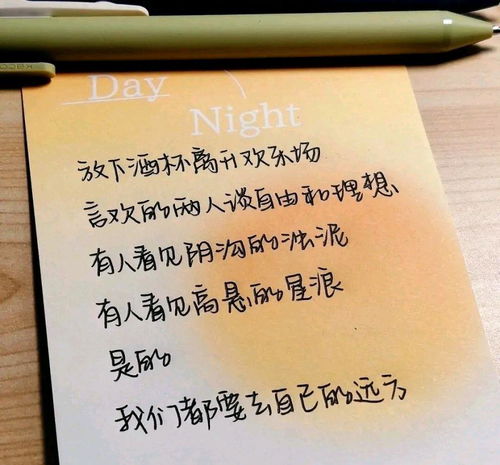 Day
Night
放下酒杯离开欢乐场
言欢的两人谈自由和理想
有人看见阴沟的浊泥
有人看见高悬的星浪
是的
我们都要去自己的远方